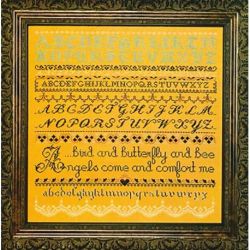 ABCDEFGHIJKLMNOPQRSTUVWXYZ
ABCDEFGHIJKLM
NOPQRSTUVWXYZ
A ...Bird and Butterfly and Bee
Angels come and comfort me
abcdefghijklmnopqrstuvwxyz